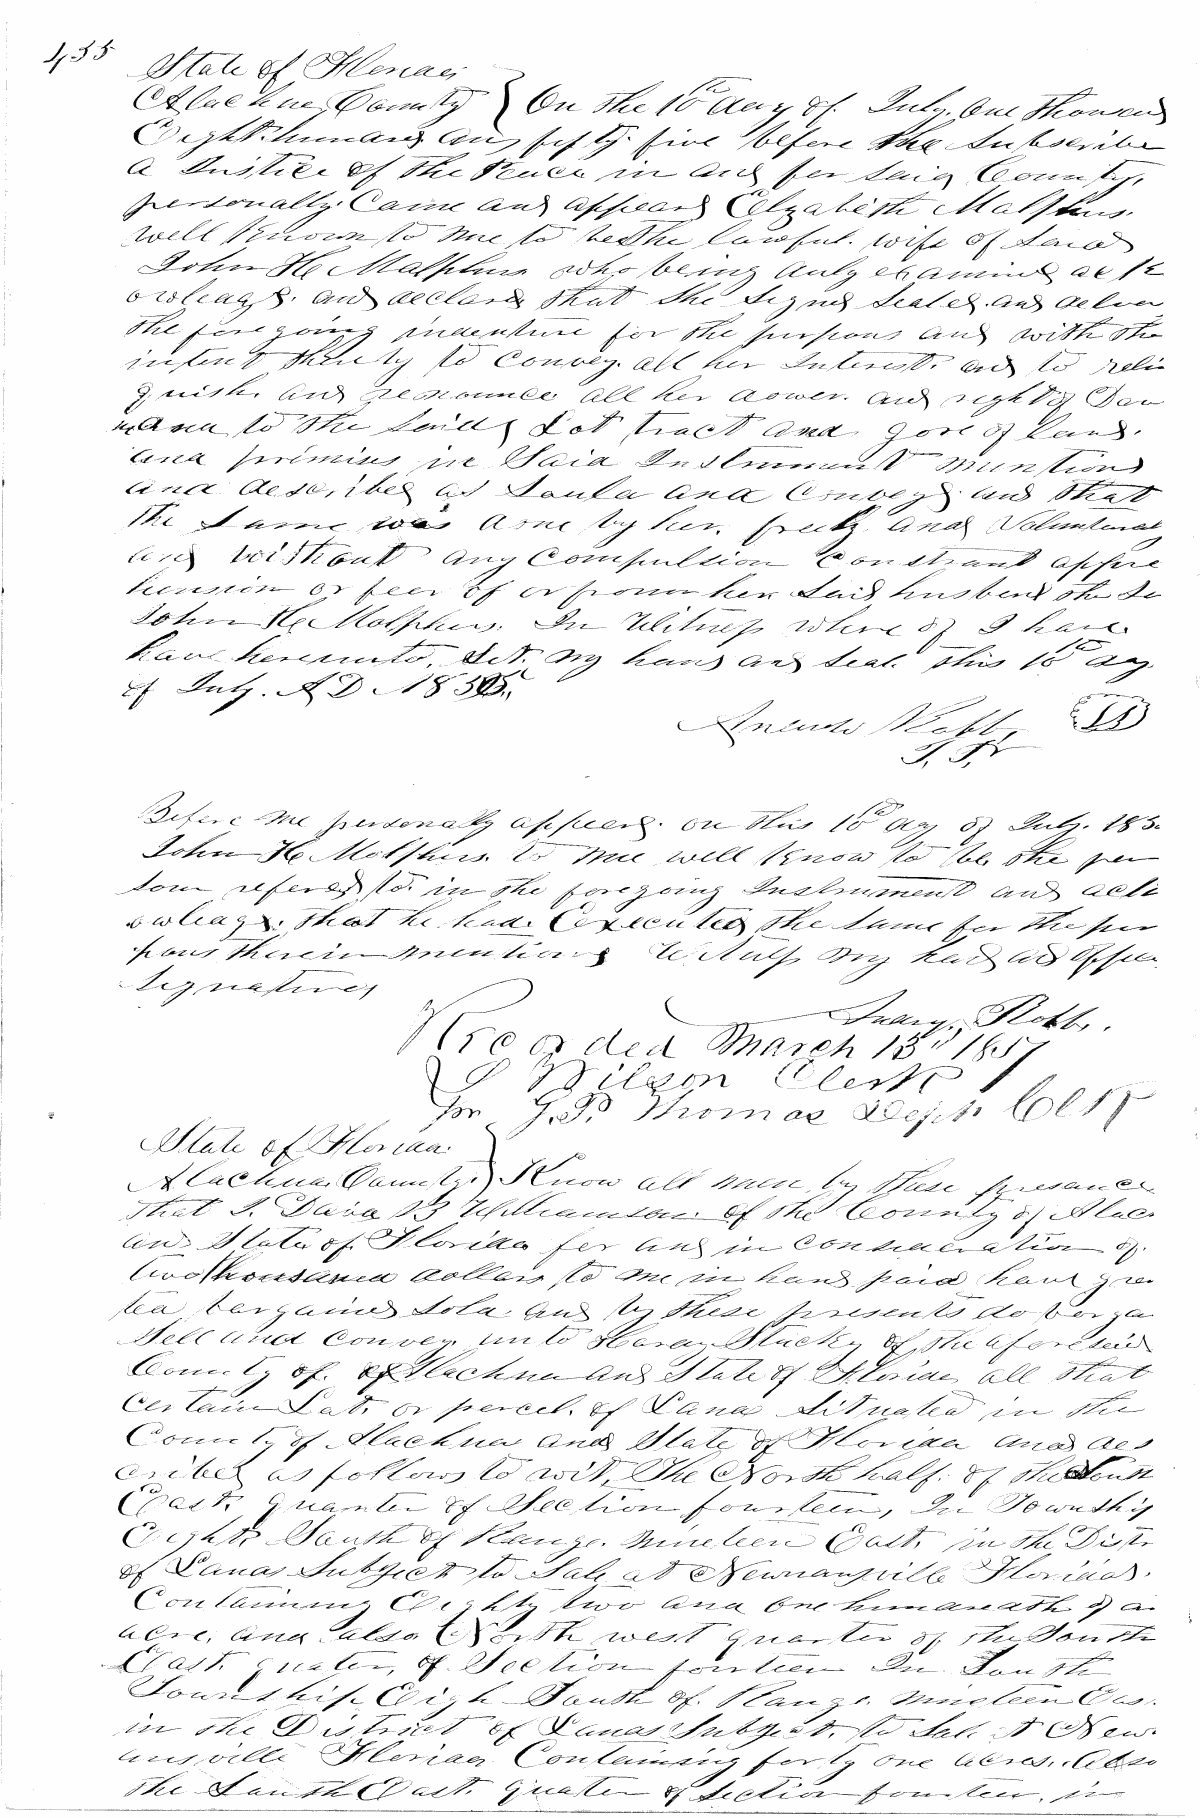 435
State of Florida
Alachua County } On the 10th day of July, One thousand
Eight hundred and fifty five before the Subscriber
a Justice of the Peace in and for said County,
personally Came and appeard Elizabeth Malphus.
well known to me to be the lawful wife of said
John H Malphus who being duly examined ack
owledgd. and declared that she signed sealed and deliver
the foregoing indenture for the purpous and with the
intent thereby to convey all her Interest. and to relin
quish and renounce all her dower. and right of Dow
to the said Lot tract and gore of Land.
and primises in Said Instrument mentiond
and described as Sould and Conveyd and that
the same was done by her. freely and Voluntaraly
and without any Compulsion Constraint appre
hension or feer of or from her said husbend the sd
John H. Malphus. In Witness where of I have
have hereunto. Set. my hand and seal this 10th day
of July. A D. 1855.
Robb,
J. P.
Before me personally appeard. on this 10th day of July. 185
John H Malphus. to me well know to be the per
son refered to in the foregoing Instrument and ack
owledgd. that he had. Executed the same for the pur
pous therein mentiond Witness my hand and offici
signature,
Robb.
Recorded March 13th 1857
Wilson Clerk
for J. P. Thomas Depth Clk
State of Florida.
Alachua County.) Know all men by these presance
that I. David B Williamson of the County of Alac
and State of Florida for and in consideration of
two thousand dollars to me in hand paid have gran
ted bargained sold. and by these presents do barga
Sell and convey unto Stucky of the aforesaid
County of. of Alachua and State of Florida, all that
certain Lat. or percel. of Land situated in the
County of Alachua and State of Florida and des
cribed as follows to wit, The North half. of the South
East. quarter of Section fourteen, In Township
Eight South of Range. nineteen East. in the Distr
of Lands Subject to Sale at Newnansville Florida.
Containing Eighty two and one hundreath of an
acre, and also North west quarter of the South
East. quater, of Section fourteen In South
Township Eigh South of. Range. nineteen Eas.
in the District of Lands Subject. to Sale at New
ansville Florida Containing forty one acres. Also
the South East. quater of section fourteen. in